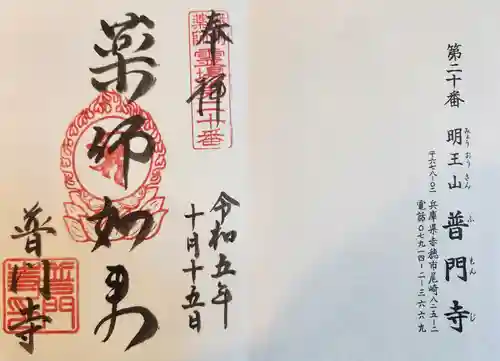 第二十番 明王山 普門寺
みょうおうさん ふもんじ
〒六七八-〇二 兵庫県赤穂市尾崎八二五-二
電話〇七九一四-二-三六六九
奉拝
霊場
二十番
令和五年
十月十五日
薬師如来
普門寺
普門